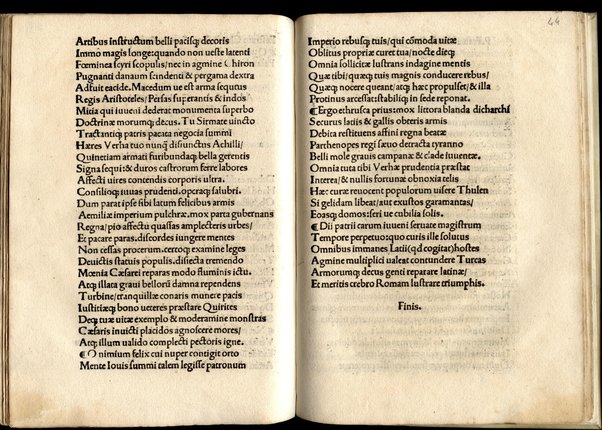 Artibus instructum belli pacisq; decoris
Immo magis longe: quando non ueste latenti
Fœminea scyri scopulis/ nec in agmine Chiron
Pugnanti danaum scindenti & pergama dextra
Adfuit eacide. Macedum ue est arma sequutus
Regis Aristoteles/ Persas superantis & indos
Mitia qui iuueni dederat monumenta superbo
Doctrinæ morumq; decus. Tu Sirmate uincto
Tractantiq; patris pacata negocia summi
Hæres Verha tuo nunq; disiunctus Achilli/
Quinetiam armati furibundaq; bella gerentis
Signa sequi: & duros castrorum ferre labores
Affecti uires contendis corporis ultra.
Consilioq; iuuas prudenti. operaq; salubri.
Dum parat ipse sibi latum felicibus armis
Aemiliæ imperium pulchræ. mox parta gubernans
Regna/ pio affectu quassas amplecteris urbes/
Et pacare paras. discordes iungere mentes
Non cessas procerum. certoq; examine leges
Deuictis statuis populis. disiecta tremendo
Mœnia Cæsarei reparas modo fluminis ictu.
Atq; illata graui bellorũ damna rependens
Turbine/ tranquillæ conaris munere pacis
Iustitiæq; bono ueteres præstare Quirites
Deq; tuæ uitæ exemplo & moderamine monstras
Cæsaris inuicti placidos agnoscere mores/
Atq; illum ualido complecti pectoris igne.
¶ O nimium felix cui nuper contigit orto
Mente Iouis summi talem legisse patronum
44
Imperio rebusq; tuis/ qui cõmoda uitæ
Oblitus propriæ curet tua/ nocte dieq;
Omnia sollicitæ lustrans indagine mentis
Quæ tibi/ quæq; tuis magnis conducere rebus/
Quæq; nocere queant/ atq; hæc propulset/ & illa
Protinus arcessat: stabiliq; in sede reponat.
¶ Ergo ethrusca prius: mox littora blanda dicharchi
Securus latiis & gallis obteris armis
Debita restituens affini regna beatæ
Parthenopes regi sæuo detracta tyranno
Belli mole grauis campanæ & clade iuuentæ.
Omnia tuta tibi Verhæ prudentia præstat
Interea/ & nullis fortunæ obnoxia telis
Hæc curæ reuocent populorum uisere Thulen
Si gelidam libeat/ aut exustos garamantas/
Eoasq; domos: seri ue cubilia solis.
¶ Dii patrii carum iuueni seruate magistrum
Tempore perpetuo: quo curis ille solutus
Omnibus immanes Latii (qđ cogitat) hostes
Agmine multiplici ualeat contundere Turcas
Armorumq; decus genti reparare latinæ/
Et meritis crebro Romam lustrare triumphis.
Finis.